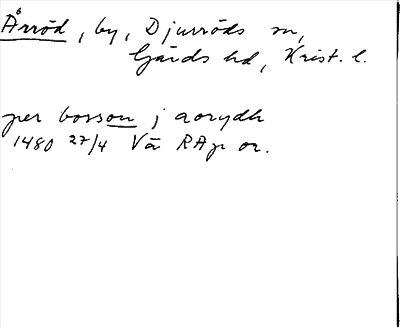 Årröd, by, Djurröds sn,
Gärds hd, Krist. l.
per bosson j aorydh
1480 27/4 Vä RAp or.